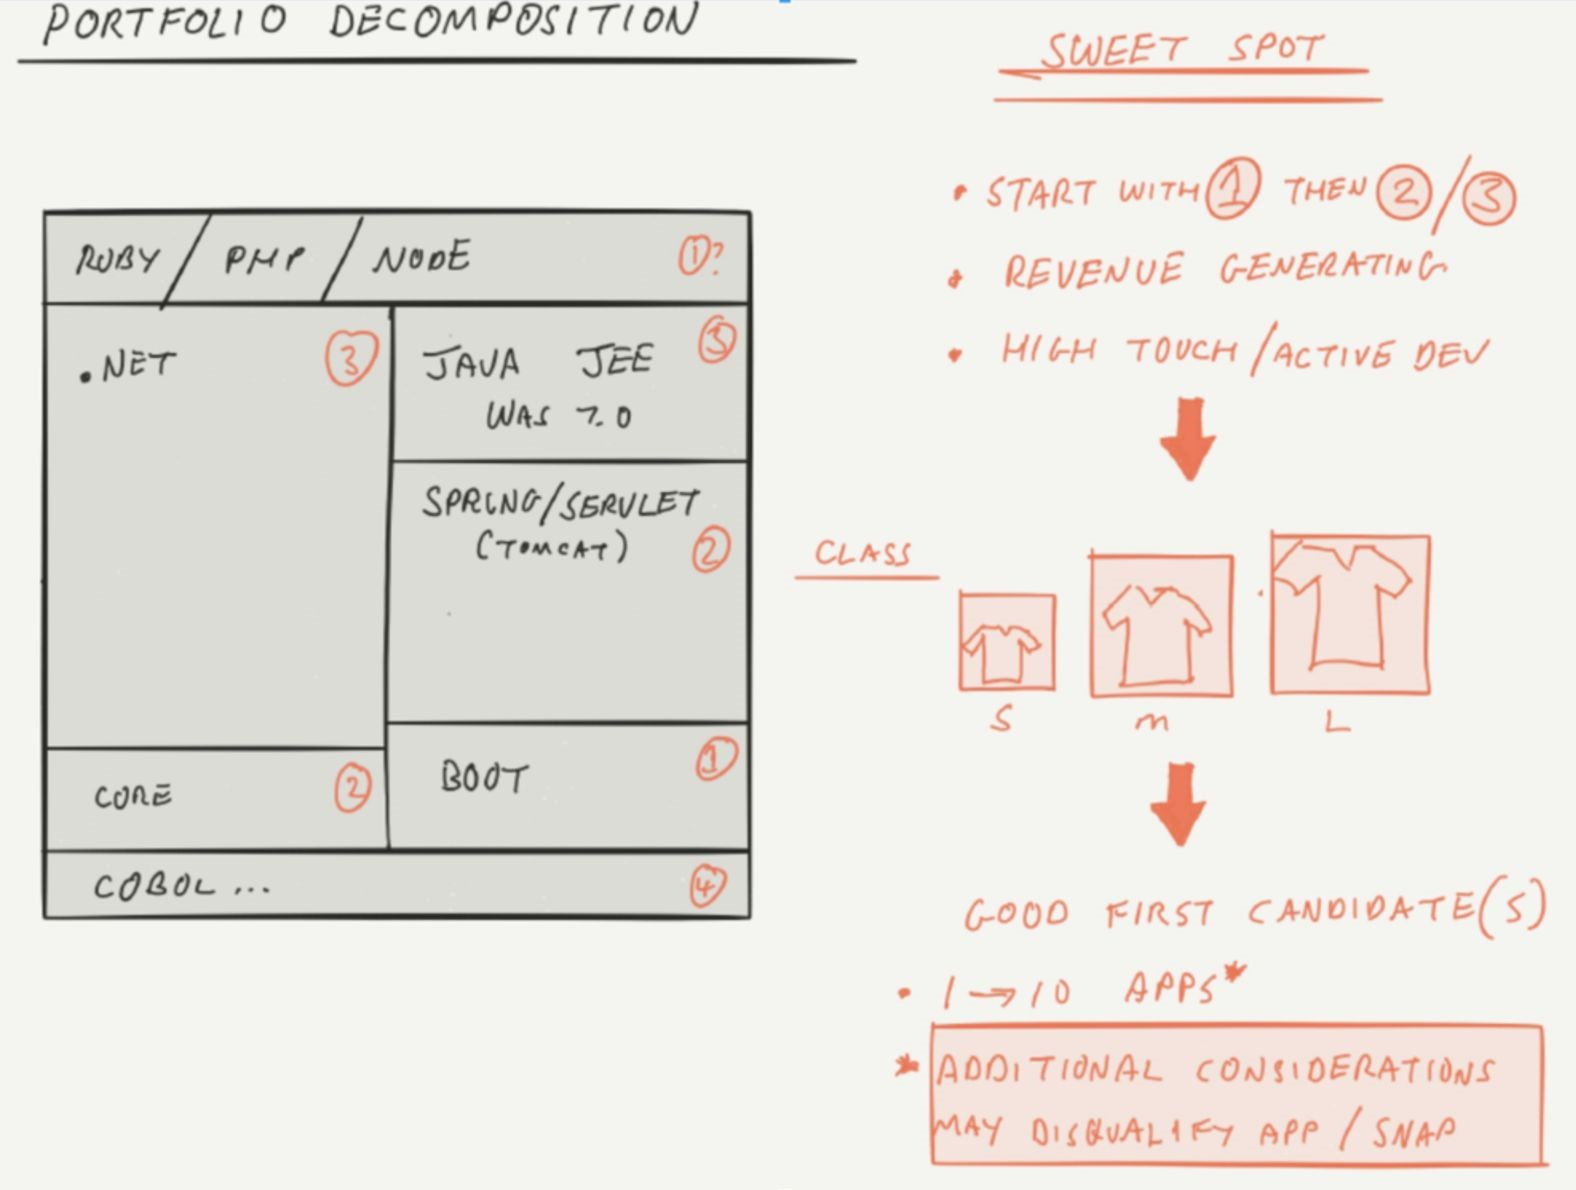 PORTFOLIO DECOMPOSITION
RUBY / PHP / NODE ①?
.NET ③
JAVA JEE ③
WAS 7.0
SPRING/SERVLET
(TOMCAT) ②
CORE ②
BOOT ①
COBOL ... ④
SWEET SPOT
• START WITH ① THEN ②/③
• REVENUE GENERATING
• HIGH TOUCH/ACTIVE DEV
CLASS
S M L
GOOD FIRST CANDIDATE(S)
• 1→10 APPS*
* ADDITIONAL CONSIDERATIONS
MAY DISQUALIFY APP / SNAP